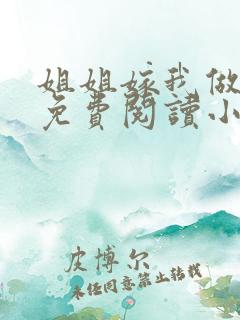 姐姐嫁我做
免費閱讀小
皮博尔
未经同意禁止转载